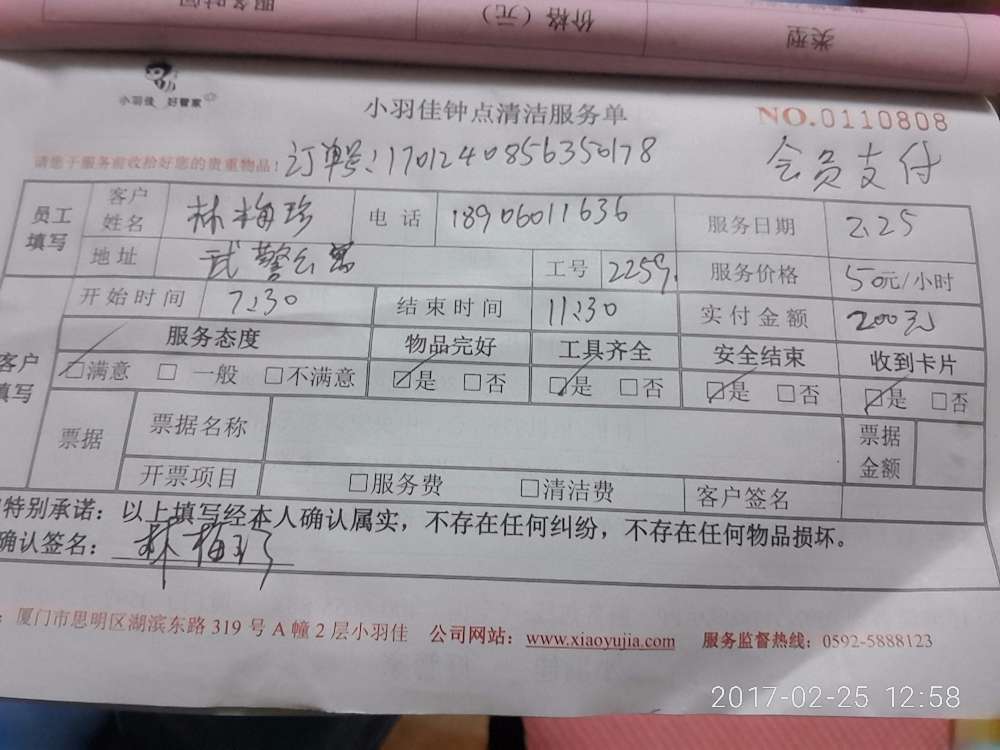 服务时间 价格(元) 类型
小羽佳 好管家
小羽佳钟点清洁服务单 NO.0110808
请您于服务前收拾好您的贵重物品: 订单号:1701240856350178 会员支付
员工填写 客户姓名 林梅珍 电话 18906011636 服务日期 2.25
地址 武警公寓 工号 2259. 服务价格 50元/小时
开始时间 7:30 结束时间 11:30 实付金额 200元
客户填写 服务态度 物品完好 工具齐全 安全结束 收到卡片
☑满意 □一般 □不满意 ☑是 □否 ☑是 □否 ☑是 □否 ☑是 □否
票据 票据名称 票据金额
开票项目 □服务费 □清洁费 客户签名
特别承诺:以上填写经本人确认属实,不存在任何纠纷,不存在任何物品损坏。
确认签名: 林梅珍
:厦门市思明区湖滨东路 319 号 A 幢 2 层小羽佳 公司网站:www.xiaoyujia.com 服务监督热线:0592-5888123
2017-02-25 12:58